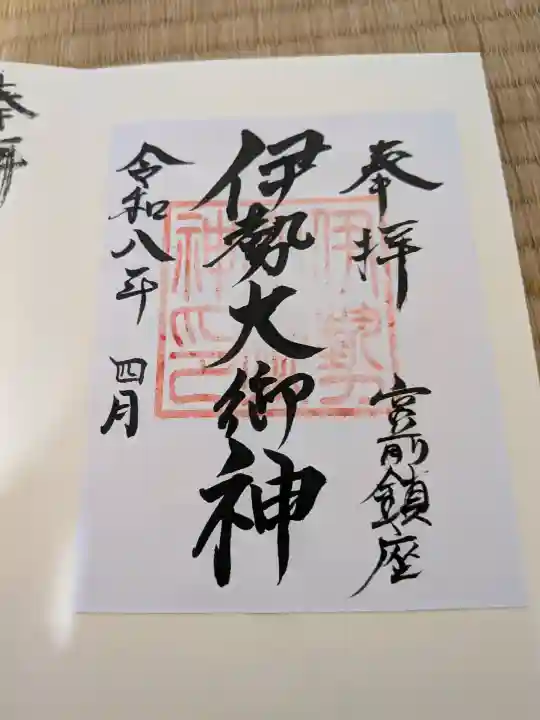 奉拝
宮前鎮座
伊勢大御神
令和八年 四月
伊勢
神印
奉拝